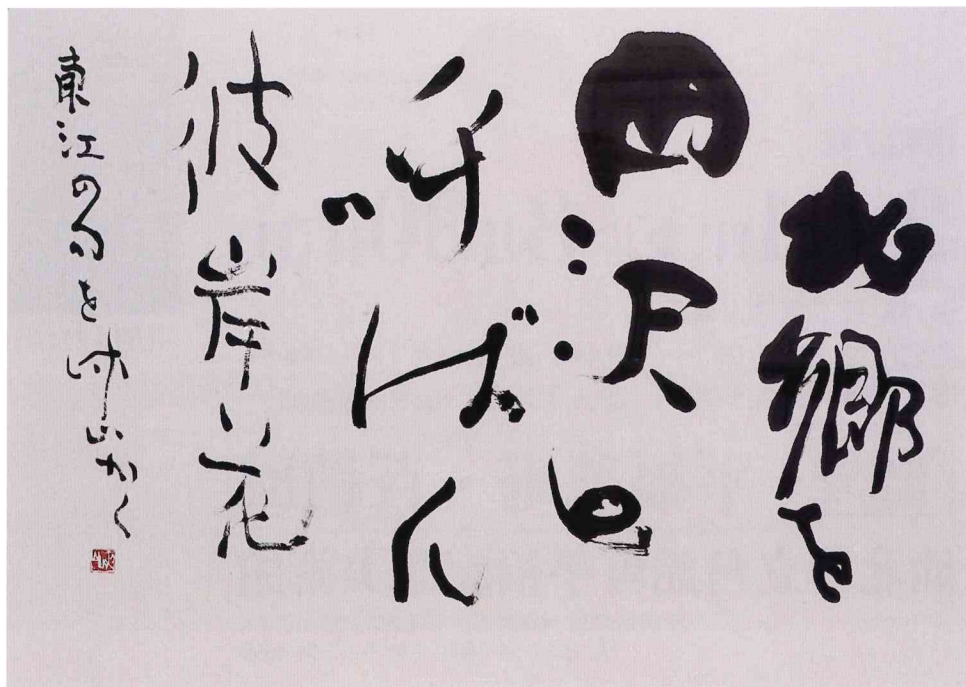 此郷を
沢と
呼ばん
彼岸花
東江の句を 山かく